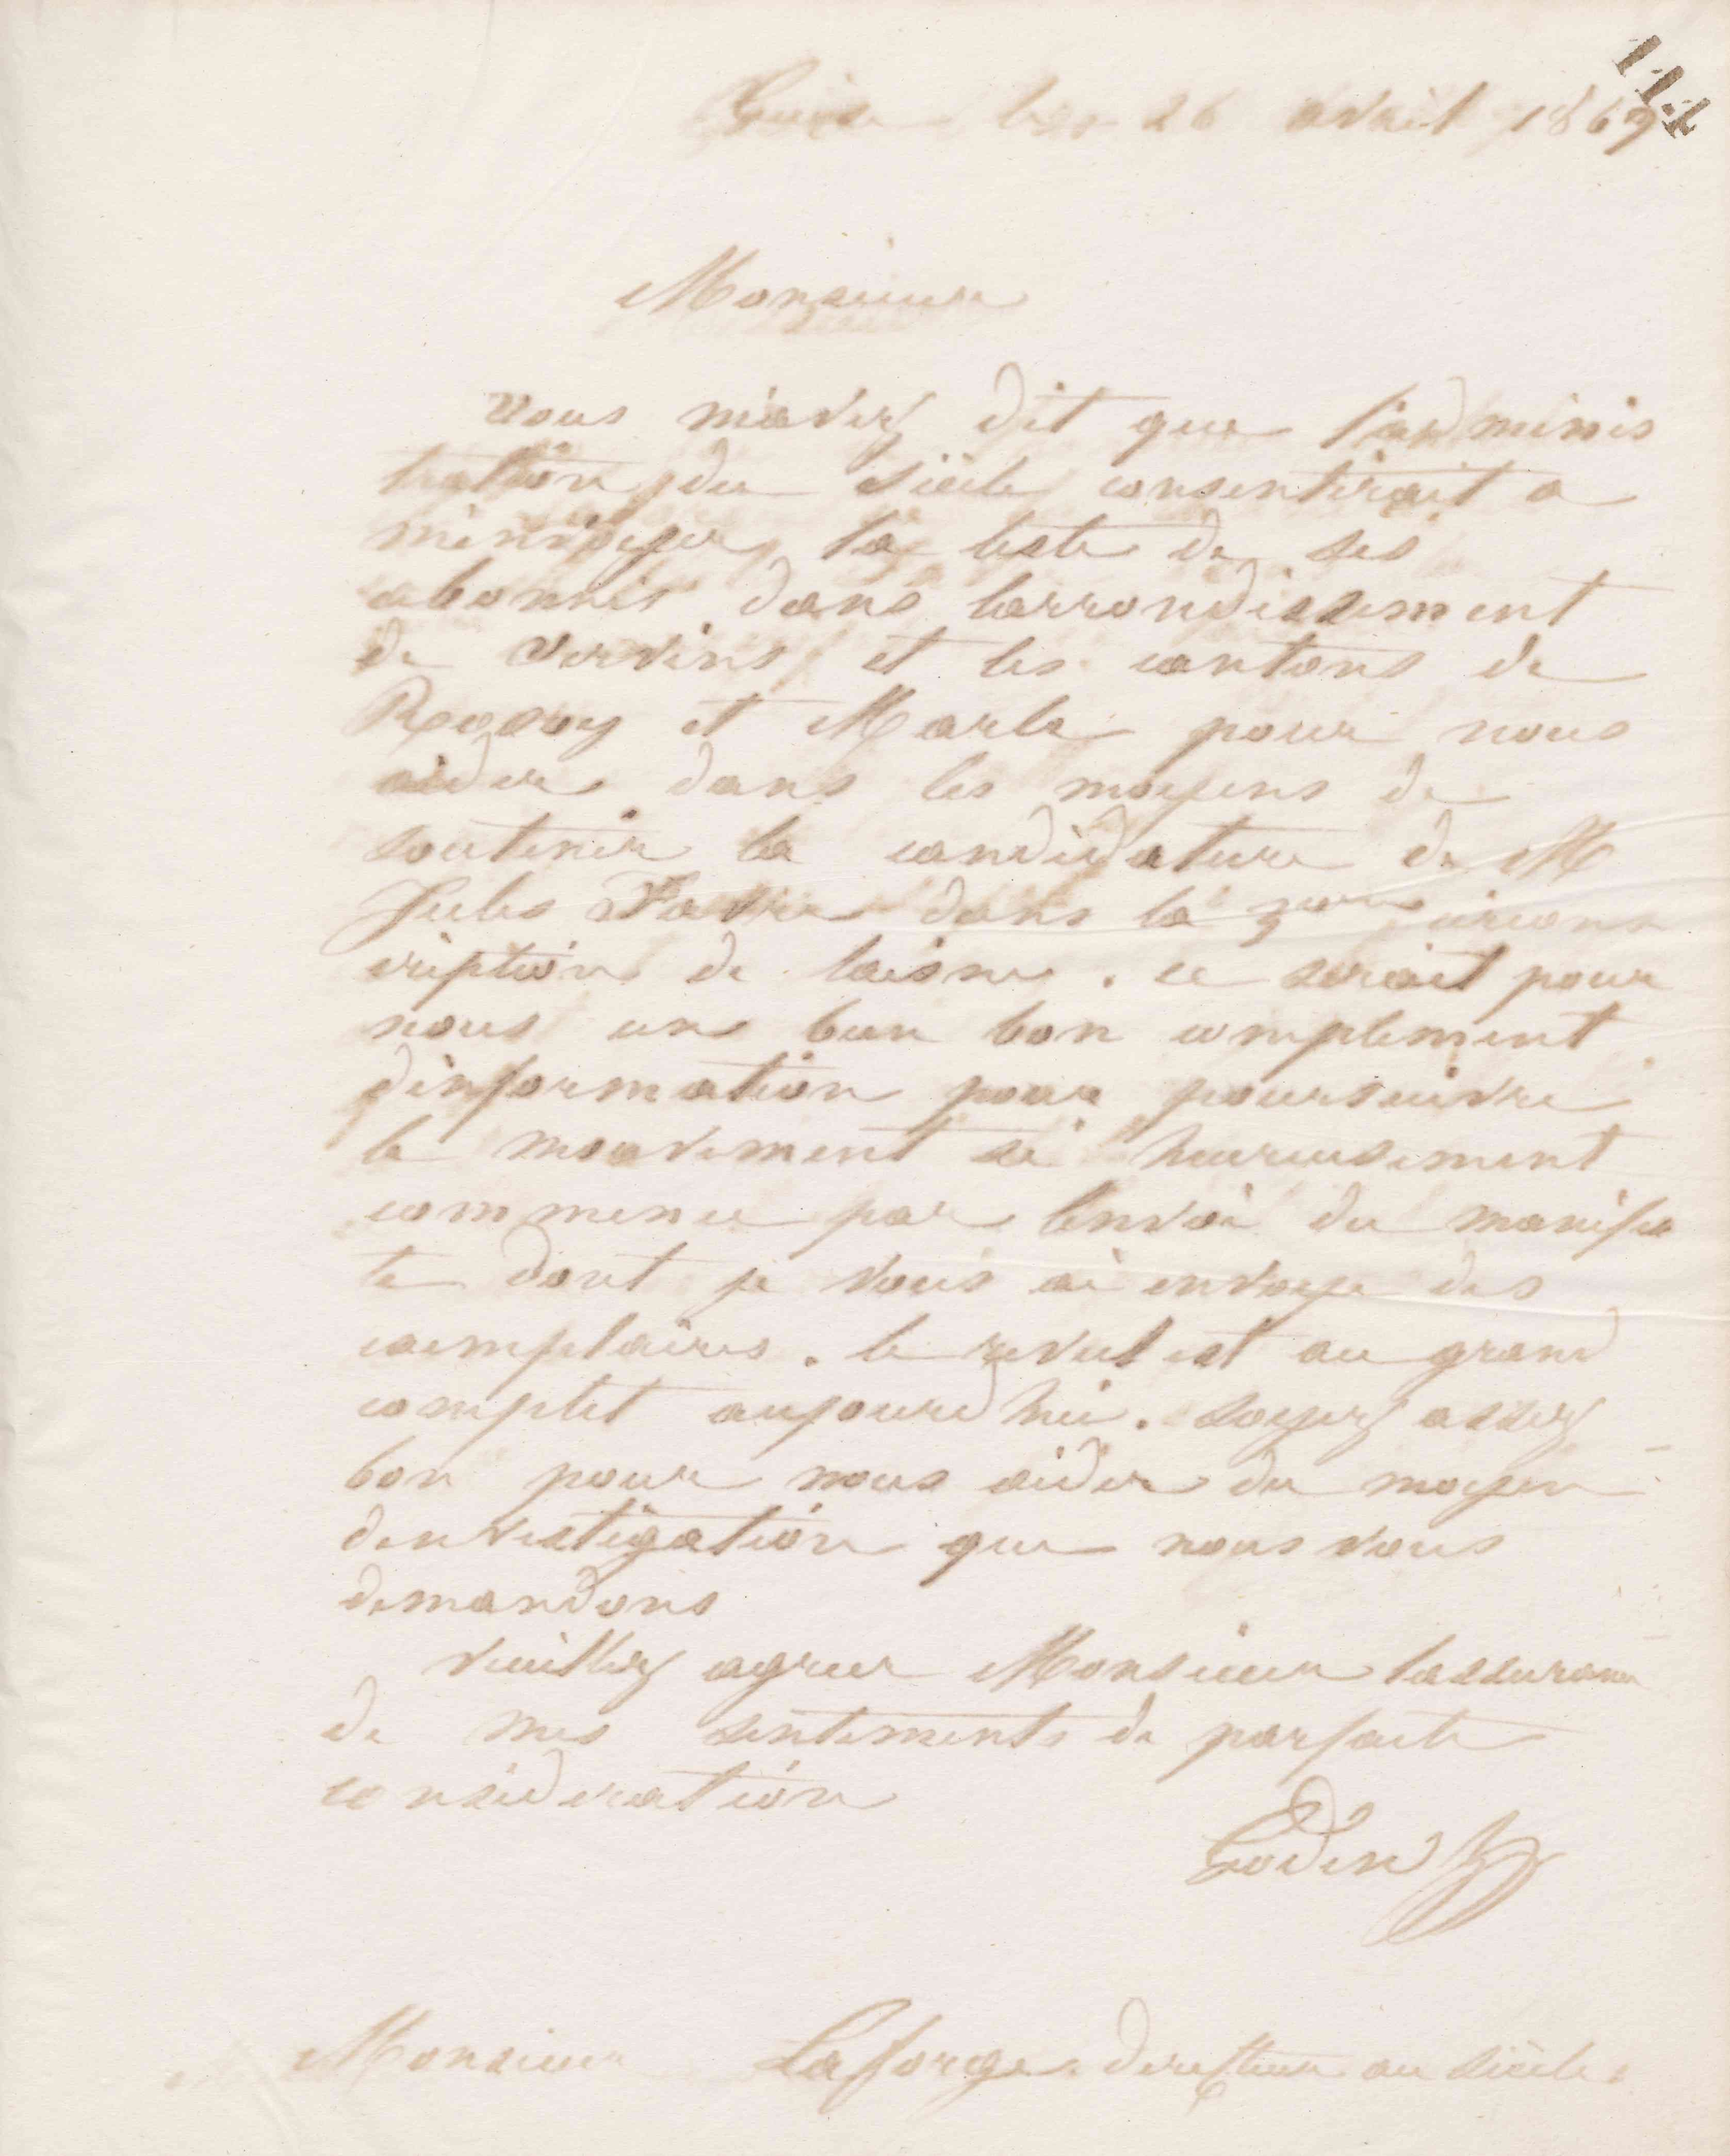 111
Guise le 26 avril 1869
Monsieur
Vous m'avez dit que l'adminis
tration du siècle consentirait a
m'envoyer la liste de ses
abonnés dans larrondissement
de Vervins et les cantons de
Rozoy et Marle pour nous
aider dans les moyens de
soutenir la candidature de M
Jules Favre dans la 3eme circons
cription de laisne. ce serait pour
nous un bon complement
d'information pour poursuivre
le mouvement si heureusement
commence par lenvoi du manifes
te dont je vous ai envoye des
exemplaires. le est au grand
complet aujourd'hui. soyez assez
bon pour nous aider du moyen
dinvestigation que nous vous
demandons
Veuillez agreer Monsieur lassurance
de mes sentiments de parfaite
consideration
Godin
Monsieur Laforge directeur au siècle.